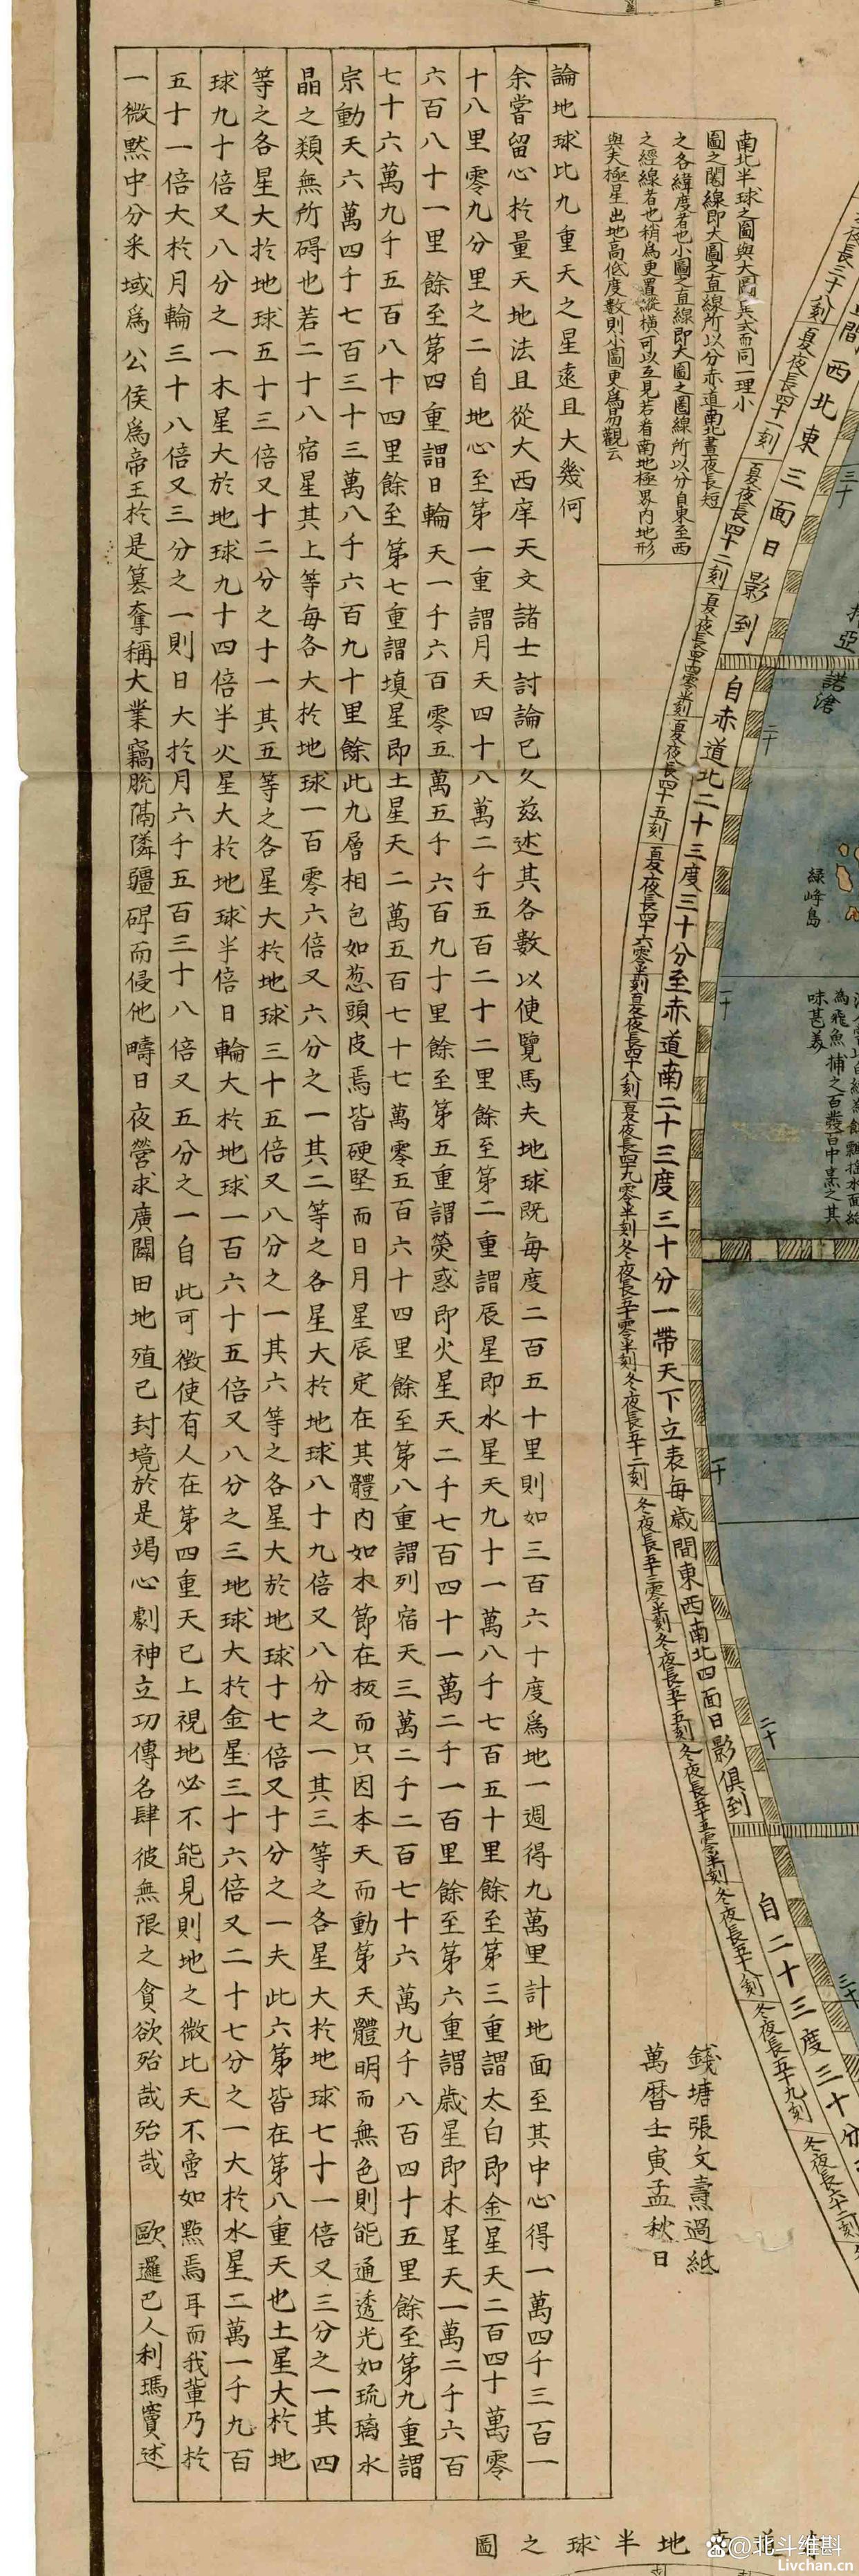 論地球比九重天之星遠且大幾何
余嘗留心於量天地法且從大西庠天文諸士討論已久茲述其各數以便覽焉夫地球既每度二百五十里則如三百六十度爲地一週得九萬里計地面至其中心得一萬四千三百一
十八里零九分里之二自地心至第一重謂月天四十八萬二千五百二十二里餘至第二重謂辰星即水星天九十一萬八千七百五十里餘至第三重謂太白即金星天二百四十萬零
六百八十一里餘至第四重謂日輪天一千六百零五萬五千六百九十里餘至第五重謂熒惑即火星天二千七百四十一萬二千一百里餘至第六重謂歲星即木星天一萬二千六百
七十六萬九千五百八十四里餘至第七重謂填星即土星天二萬五百七十七萬零五百六十四里餘至第八重謂列宿天三萬二千二百七十六萬九千八百四十五里餘至第九重謂
宗動天六萬四千七百三十三萬八千六百九十里餘此九層相包如葱頭皮焉皆硬堅而日月星辰定在其體內如木節在板而只因本天而動第天體明而無色則能通透光如琉璃水
晶之類無所碍也若二十八宿星其上等每各大於地球一百零六倍又六分之一其二等之各星大於地球八十九倍又八分之一其三等之各星大於地球七十一倍又三分之一其四
等之各星大於地球五十三倍又十二分之十一其五等之各星大於地球三十五倍又八分之一其六等之各星大於地球十七倍又十分之一夫此六第皆在第八重天也土星大於地
球九十倍又八分之一木星大於地球九十四倍半火星大於地球半倍日輪大於地球一百六十五倍又八分之三地球大於金星三十六倍又二十七分之一大於水星二萬一千九百
五十一倍大於月輪三十八倍又三分之一則日大於月六千五百三十八倍又五分之一自此可徵使有人在第四重天已上視地必不能見則地之微比天不啻如點焉耳而我輩乃於
一微點中分采域爲公侯爲帝王於是簒奪稱大業竊脫隔隣疆碑而侵他疇日夜營求廣闢田地殖己封境於是竭心劇神立功傳名肆彼無限之貪欲殆哉殆哉 歐邏巴人利瑪竇述
南北半球之圖與大圖異式而同一理小
圖之闊線即大圖之直線所以分赤道南北晝夜長短
之各緯度者也小圖之直線即大圖之圈線所以分自東至西
之經線者也稍爲更置縱橫可以互見若看南地極界內地形
與夫極星出地高低度數則小圖更爲易觀云
間西北東三面日影到
自赤道北二十三度三十分至赤道南二十三度三十分一帶天下立表每歲間東西南北四面日影俱到
自二十三度三十分
夏夜長三十八刻
夏夜長四十一刻
夏夜長四十二刻
夏夜長四十四零半刻
夏夜長四十五刻
夏夜長四十六零半刻
夏夜長四十八刻
夏夜長四十九零半刻
冬夜長五十零半刻
冬夜長五十二刻
冬夜長五十三零半刻
冬夜長五十五刻
冬夜長五十五零半刻
冬夜長五十八刻
冬夜長五十九刻
冬夜長六十二刻
三十
二十
一十
一十
二十
三十
諾滄
綠峰島
爲飛魚捕之百發百中烹之其
味甚美
錢塘張文燾過紙
萬曆壬寅孟秋日
南地半球之圖
@北斗维斟
Livchan.cn